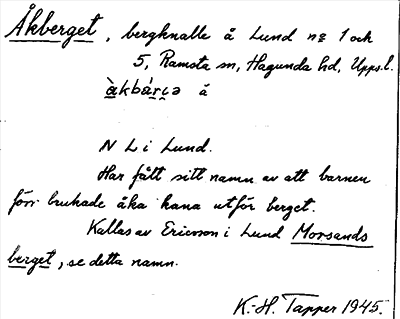 Åkberget, bergknalle å Lund nº 1 och
5, Ramsta sn, Hagunda hd, Upps.l.
å
N L i Lund.
Har fått sitt namn av att barnen
förr brukade åka kana utför berget.
Kallas av Ericson i Lund Morsands
berget, se detta namn.
K.-H. Tapper 1945.